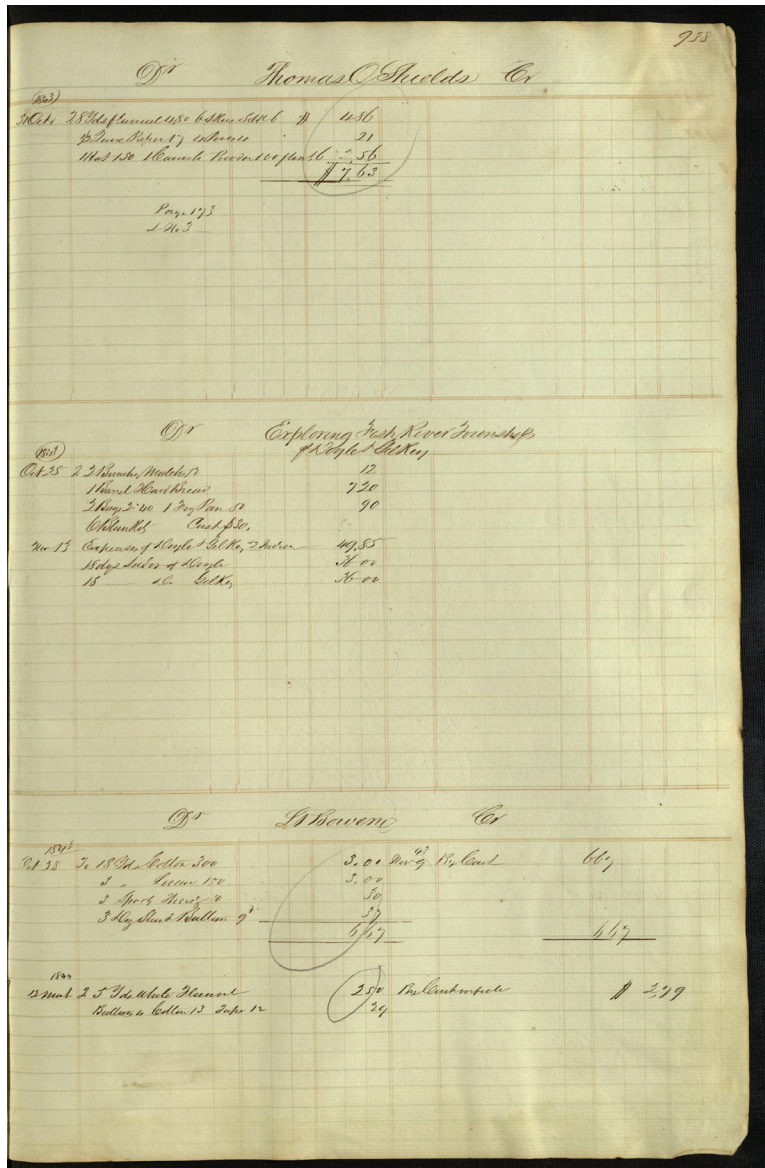 938
Dr Thomas O Shields Cr
1843
31 Oct 28 Yds flannel 4 80 6 Skns Silk 6 $ 4 86
½ Quire Paper 17 4 21
1 Hat 1 50 1 Powder 56 2,56
$ 7,63
Page 173
L No 3
Dr Exploring Fish River Townships
of Doyle & Gilkey
1843
Oct 25 2 Bunches Matches 12
1 Barrel Hard Bread 7 20
2 Bags 2- 40 1 Fry Pan 50 90
6 Blankets Cash $30.
Nov 13 Expenses of Doyle & Gilkey 2 49,85
18 dys Labor of Doyle 36 00
18 Do Gilkey 36 00
Dr Lt Bowen Cr
1843 43
Oct 28 To 18 Yds Cotton 300 3.00 Nov 9 By Cash 667
3 " 3.00
3 30
3 Doz Shirt Buttons 9 37
6 67 6 67
1844
2 5 Yds White Flannel 2 50 By Cash $ 2,79
Buttons 4 Cotton 13 Tape 12 29